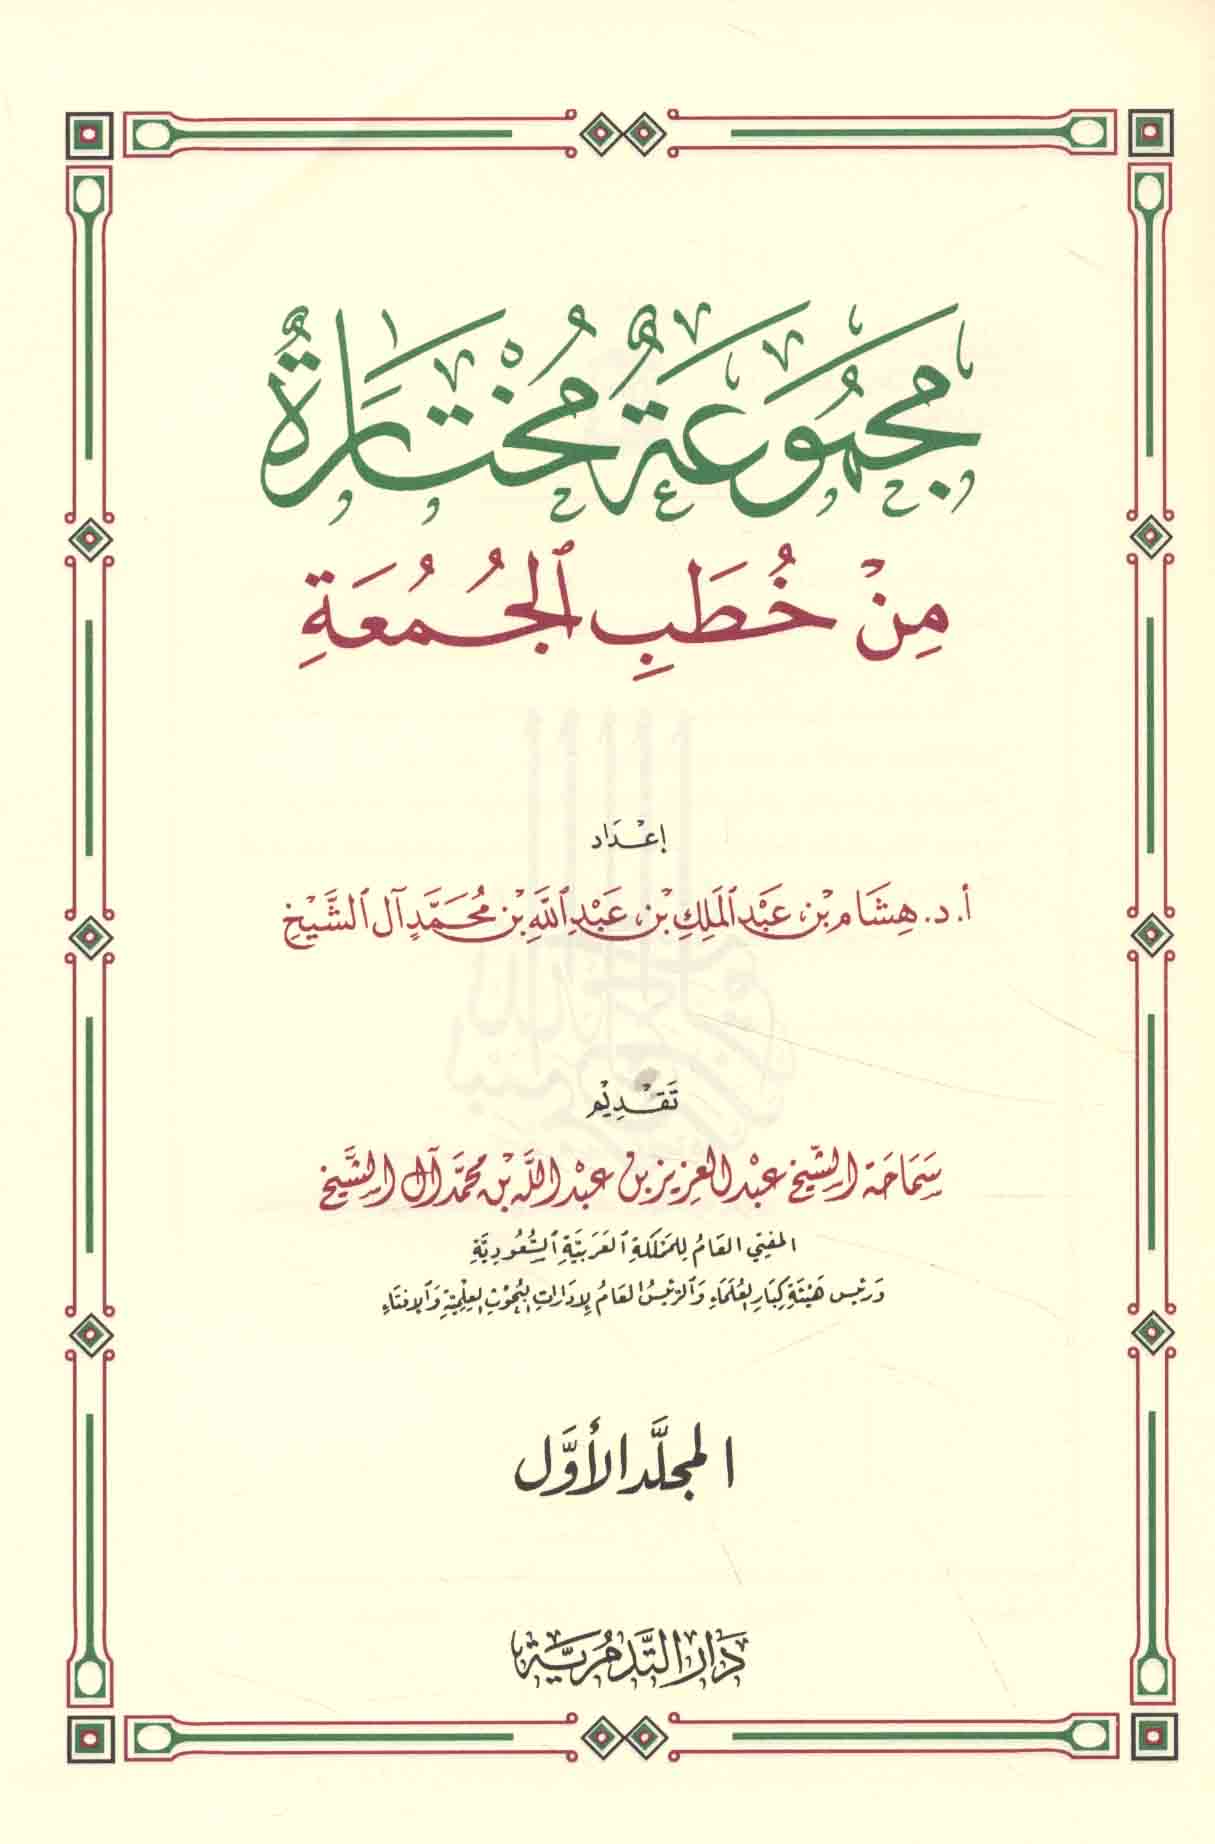 مَجْمُوعَةٌ مُخْتَارَةٌ
مِنْ خُطَبِ الجُمُعَةِ
إعْدَاد
أ. د. هِشَام بْن عَبْدِ المَلِكِ بْن عَبْدِ اللَّهِ بْن مُحَمَّدٍ آل الشَّيْخِ
تَقْدِيْم
سَمَاحَة الشَّيْخ عَبْد العَزِيز بْن عَبْد اللَّه بْن مُحَمَّد آل الشَّيْخ
المُفْتِي العَامُ لِلمَمْلَكَةِ العَرَبِيَّةِ السُّعُودِيَّةِ
وَرَئِيس هَيْئَةِ كِبَارِ العُلَمَاءِ وَالرَّئِيسُ العَامُ لِإدَارَاتِ البُحُوثِ العِلْمِيَّةِ وَالإفْتَاءِ
المُجلَّد الأَوَّل
دَار التَّدمُرِيَّة